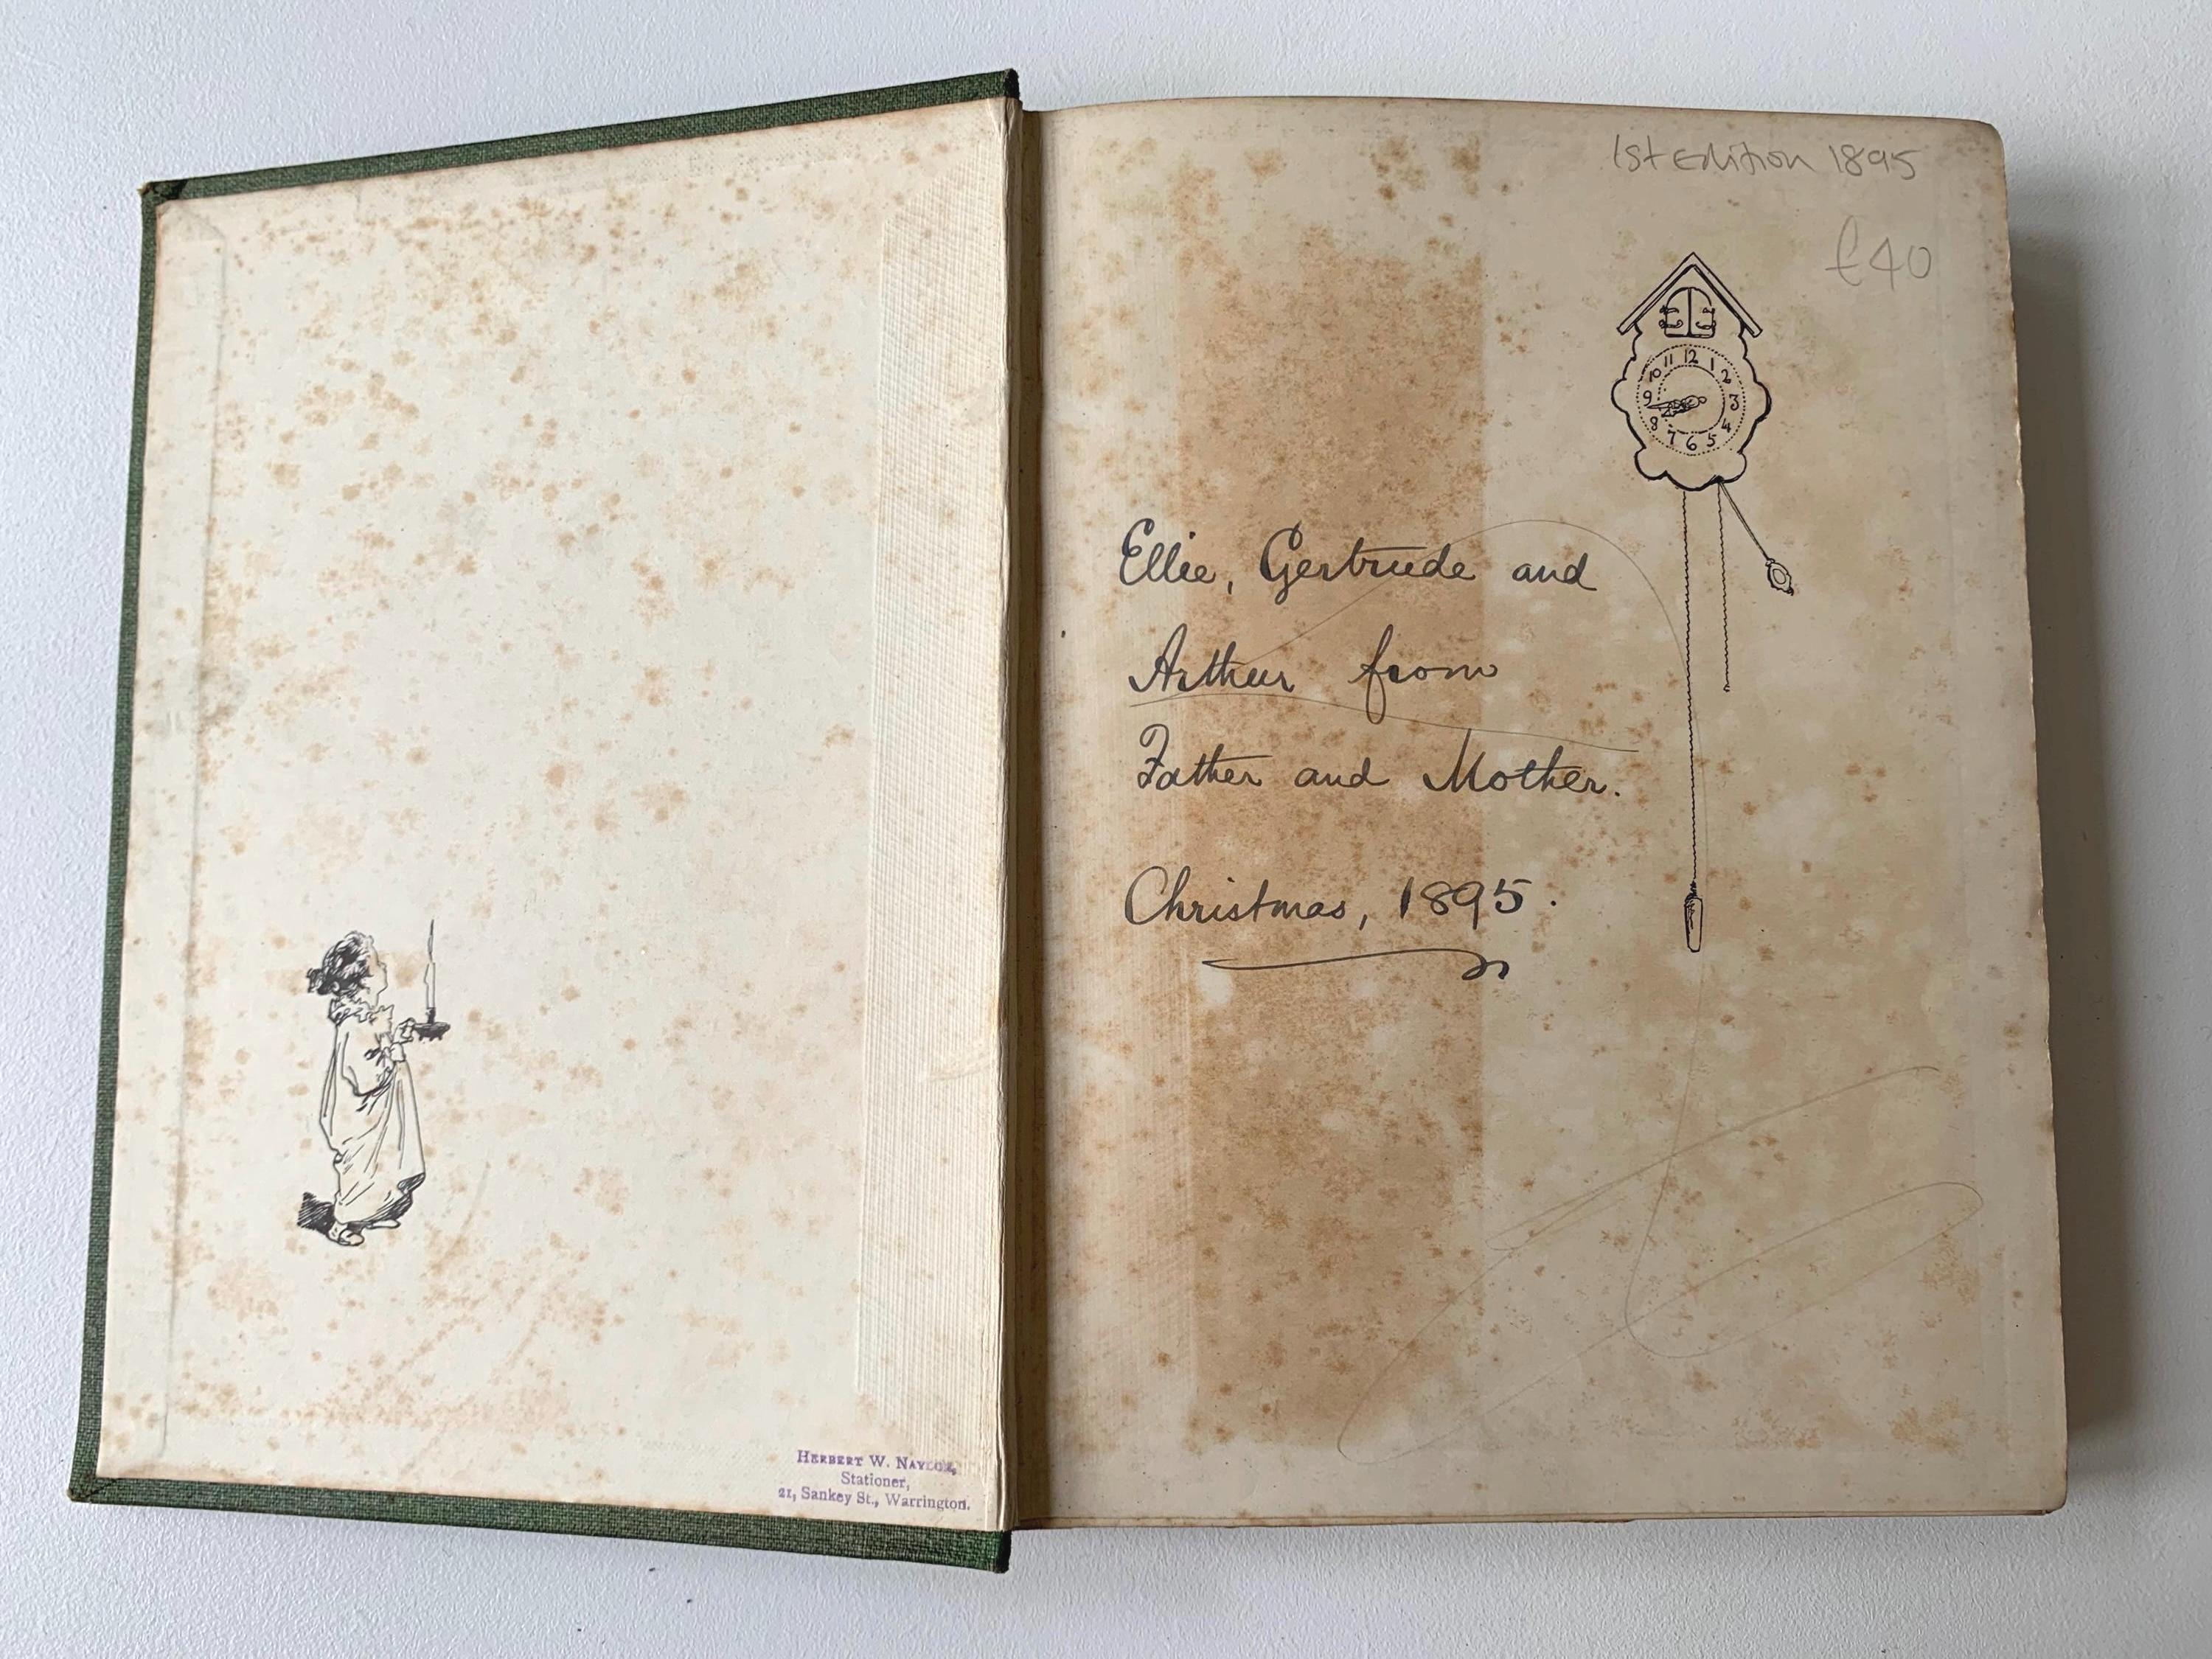 HERBERT W. NAYLOR,
Stationer,
21, Sankey St., Warrington.
1st Edition 1895
£40
11 12 1
10 2
9 3
8 4
7 6 5
Ellie, Gertrude and
Arthur from
Father and Mother.
Christmas, 1895.